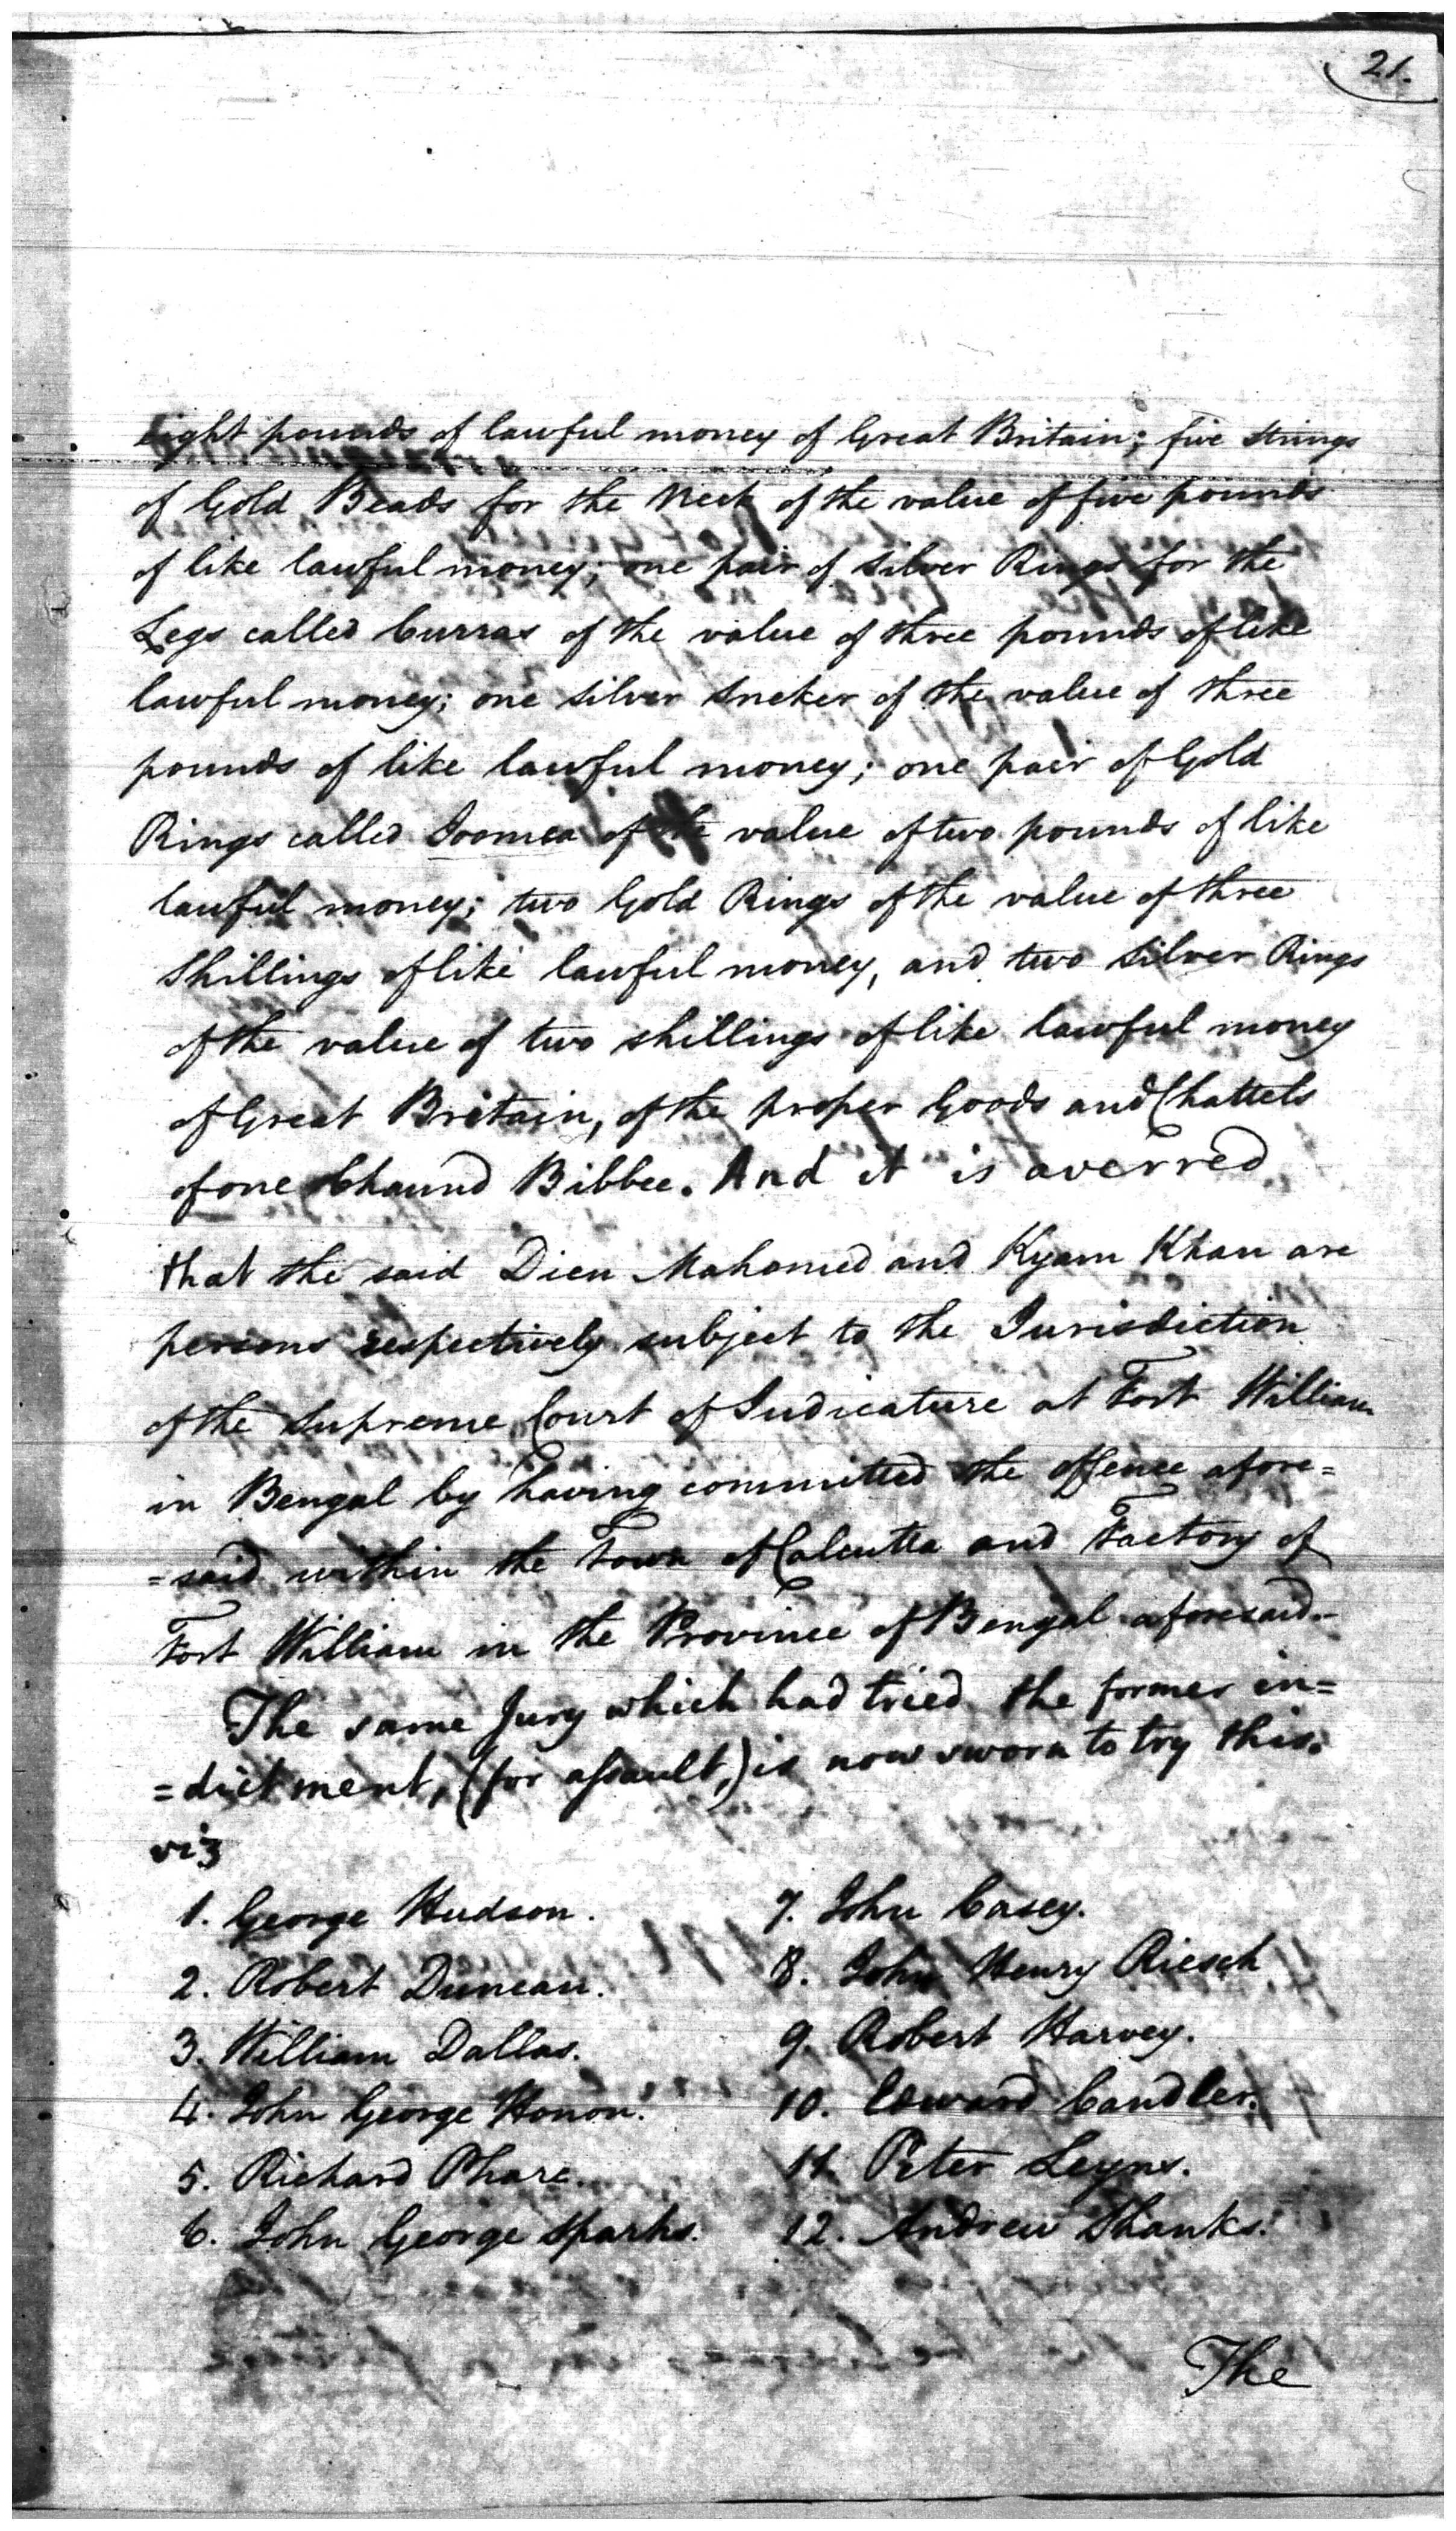 21.
Eight pounds of lawful money of Great Britain; five strings
of Gold Beads for the Neck of the value of five pounds
of like lawful money; one pair of silver Rings for the
Legs called Curras of the value of three pounds of like
lawful money; one silver sneker of the value of three
pounds of like lawful money; one pair of Gold
Rings called Joomca of the value of two pounds of like
lawful money; two Gold Rings of the value of three
Shillings of like lawful money, and two Silver Rings
of the value of two shillings of like lawful money
of Great Britain, of the proper Goods and Chattels
of one Chaund Bibbee. And it is averred
that the said Dien Mahomed and Kyam Khan are
persons respectively subject to the Jurisdiction
of the Supreme Court of Judicature at Fort William
in Bengal by having committed the offence afore=
=said within the Town of Calcutta and Factory of
Fort William in the Province of Bengal aforesaid.-
The same Jury which had tried the former in=
=dictment, (for assault,) is now sworn to try this.
viz
1. George Hudson.
2. Robert Duncan.
3. William Dallas.
4. John George Honon.
5. Richard Phare.
6. John George Sparks.
7. John Casey.
8. John Henry Riesch
9. Robert Harvey.
10. Edward Candler.
11. Peter Leyns.
12. Andrew Shanks.
The